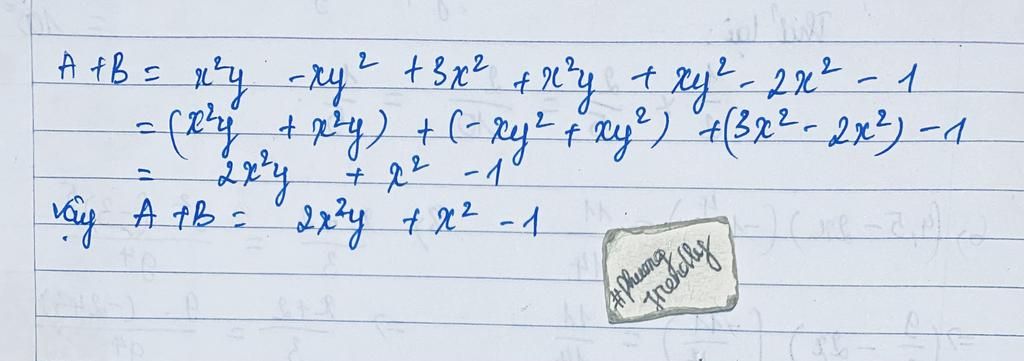 A + B = x²y - xy² + 3x² + x²y + xy² - 2x² - 1
= (x²y + x²y) + (-xy² + xy²) + (3x² - 2x²) - 1
= 2x²y + x² - 1
vậy A + B = 2x²y + x² - 1
#Phuong
trendly